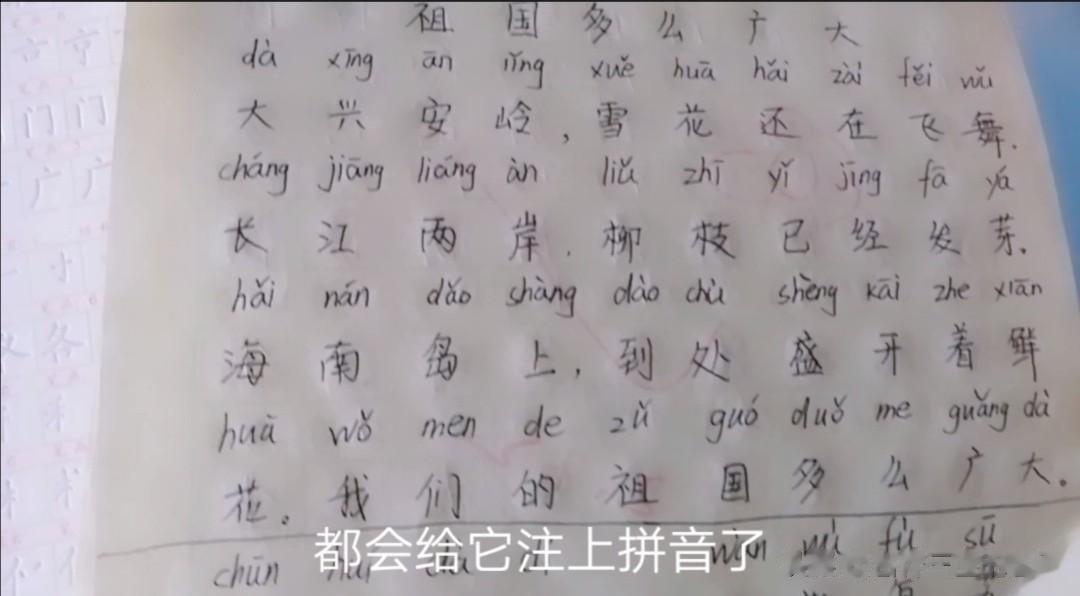 祖国多么广大
dà xīng ān lǐng xuě huā hǎi zài fēi wǔ
大兴安岭,雪花还在飞舞.
cháng jiāng liáng àn liǔ zhī yǐ jīng fā yá
长江两岸.柳枝已经发芽.
hǎi nán dǎo shàng dào chù shèng kāi zhe xiān
海南岛上,到处盛开着鲜
huā wǒ men de zǔ guó duǒ me guǎng dà
花。我们的祖国多么广大。
chūn fù sū
都会给它注上拼音了
言 亨
门 门
广 广
寸
各